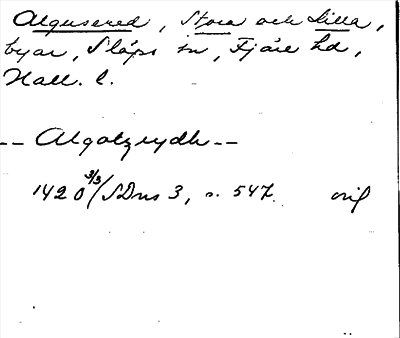 Algusered, Stora och Lilla,
byar, Släps sn, Fjäre hd,
Hall. l.
-- Algotzrydh --
1420 3/3/SDns 3, s. 547. orig